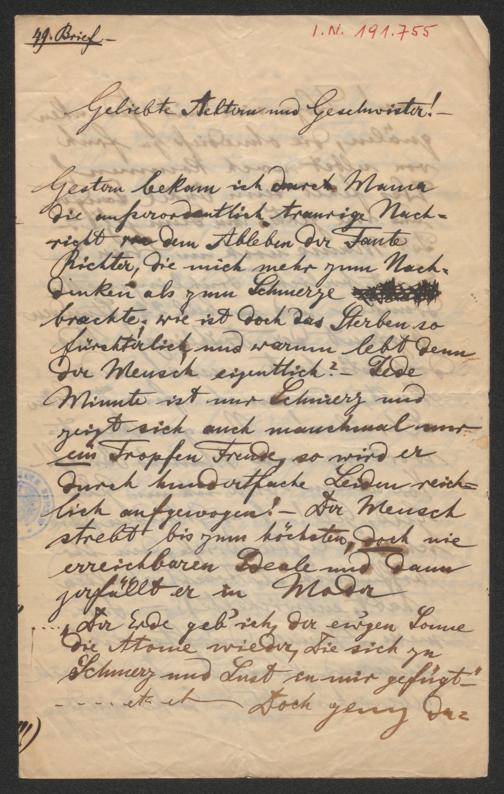 49. Brief –
I.N. 191.755
Geliebte Aeltern und Geschwister! –
Gestern bekam ich durch Mama
die aufserordentlich traurige Nach=
richt von dem Ableben der Tante
Richter, die mich mehr zum Nach=
denken als zum Schmerze
brachte; wie ist doch das Sterben so
fürchterlich und warum lebt denn
der Mensch eigentlich? – Jede
Minute ist nur Schmerz und
zeigt sich auch manchmal nur
ein Tropfen Freude, so wird er
durch hundertfache Leiden reich=
lich aufgewogen! – Der Mensch
strebt bis zum höchsten, doch nie
erreichbaren Ideale und dann
zerfällt er in Moder
„Der Erde geb' ich, der ew'gen Sonne
die Atome wieder, die sich zu
Schmerz und Lust in mir gefügt –"
– – – – et et – – Doch genug da=